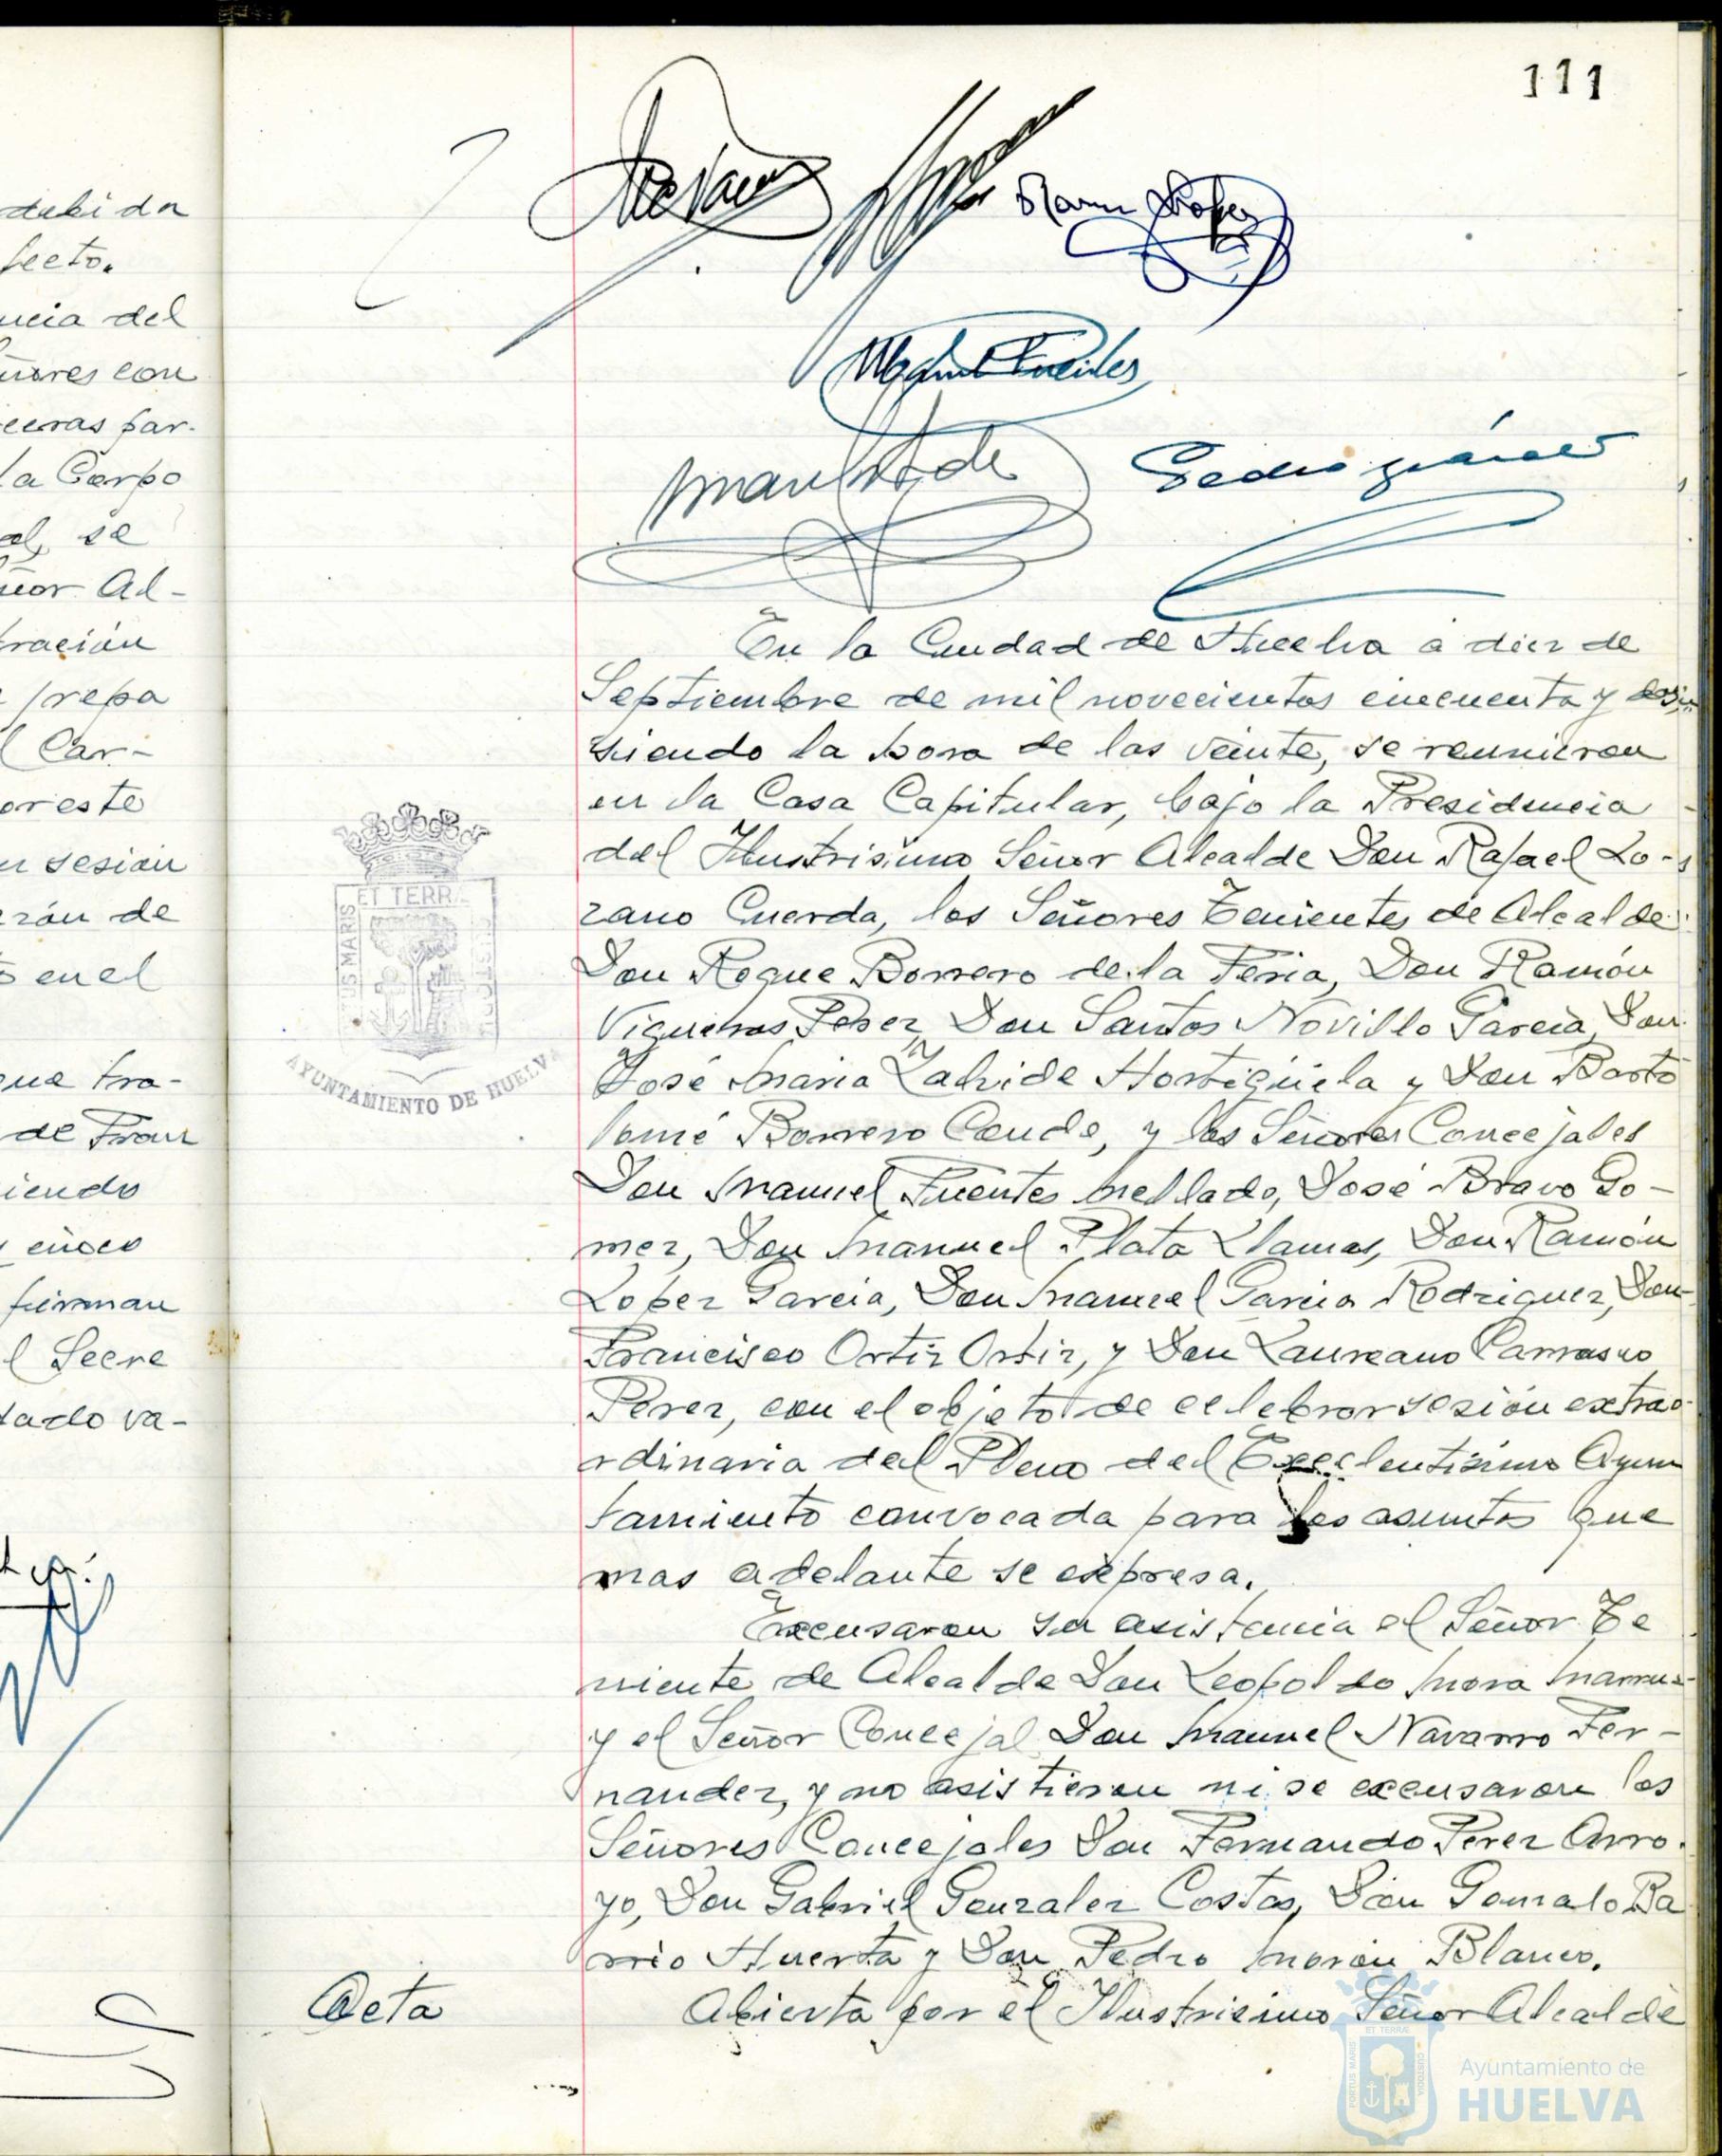 111
debida
fecto.
ncia del
ñores con
ceras par-
la Corpo
al, se
ñor Al-
ración
prepa
l Car-
or este
u sesión
rzón de
en el
que tra-
de Fran
iendo
y cinco
firman
l Secre
tado va-
Ramon Lopez
Manuel Fuentes
En la Ciudad de Huelva a diez de
Septiembre de mil novecientos cincuenta y dos,
siendo la hora de las veinte, se reunieron
en la Casa Capitular, bajo la Presidencia
del Ilustrisimo Señor Alcalde Don Rafael Lo-
zano Cuerda, los Señores Tenientes de Alcalde
Don Roque Borrero de la Feria, Don Ramón
Vigueras Perez, Don Santos Novillo Garcia, Don
José Maria Zahide Hortigüela y Don Barto
lomé Borrero Conde, y los Señores Concejales
Don Manuel Fuentes Mellado, José Bravo Go-
mez, Don Manuel Plata Llamas, Don Ramón
Lopez Garcia, Don Manuel Garcia Rodriguez, Don
Francisco Ortiz Ortiz, y Don Laureano Carrasco
Perez, con el objeto de celebrar sesión extrao-
rdinaria del Pleno del Excelentisimo Ayun
tamiento convocada para los asuntos que
mas adelante se expresa.
Excusaron su asistencia el Señor Te
niente de Alcalde Don Leopoldo Mora
y el Señor Concejal Don Manuel Navarro Fer-
nandez, y no asistieron ni se excusaron los
Señores Concejales Don Fernando Perez Arro-
yo, Don Gabriel Gonzalez Costas, Don Gonzalo Ba
rrio Huerta y Don Pedro Moron Blanco.
Acta
Abierta por el Ilustrisimo Señor Alcalde
ET TERR
TUS MARIS
AYUNTAMIENTO DE HUELVA
Ayuntamiento de
HUELVA